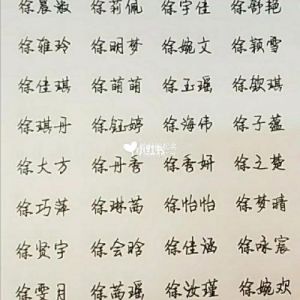 徐晨淑 徐莉佩 徐宇佳 徐舒艳
徐雅玲 徐明梦 徐婉文 徐颖雪
徐佳琪 徐萌萌 徐玉瑶 徐歆琪
徐琪丹 徐钰婷 徐海伟 徐子蕴
小红书
徐大方 徐丹秀 徐秀妍 徐之楚
徐巧萍 徐琳茜 徐怡怡 徐梦晴
徐贤宇 徐会晗 徐佳涵 徐咏宸
徐雯月 徐茜瑶 徐汝瑾 徐婉欢